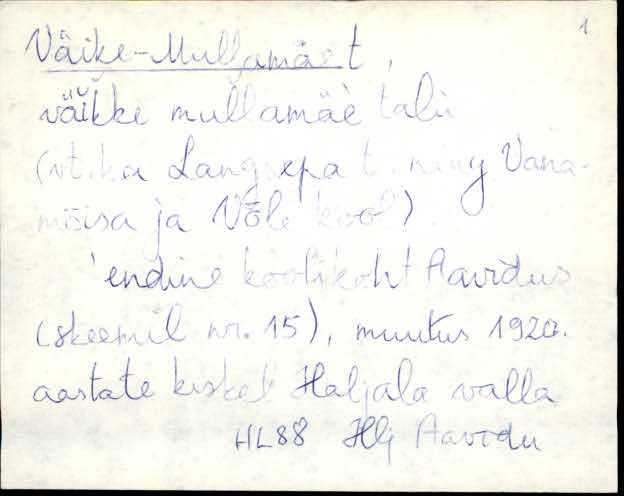 1
Väike-Mullamäe t,
väikke mullamäè talu
(vt. ka Langsepa t. ning Vana-
mõisa ja Võle kool)
'endine koolikoht Aavidus
(skeemil nr. 15), muutus 1920.
aastate keskel Haljala valla
HL88 Hlj Aavidu